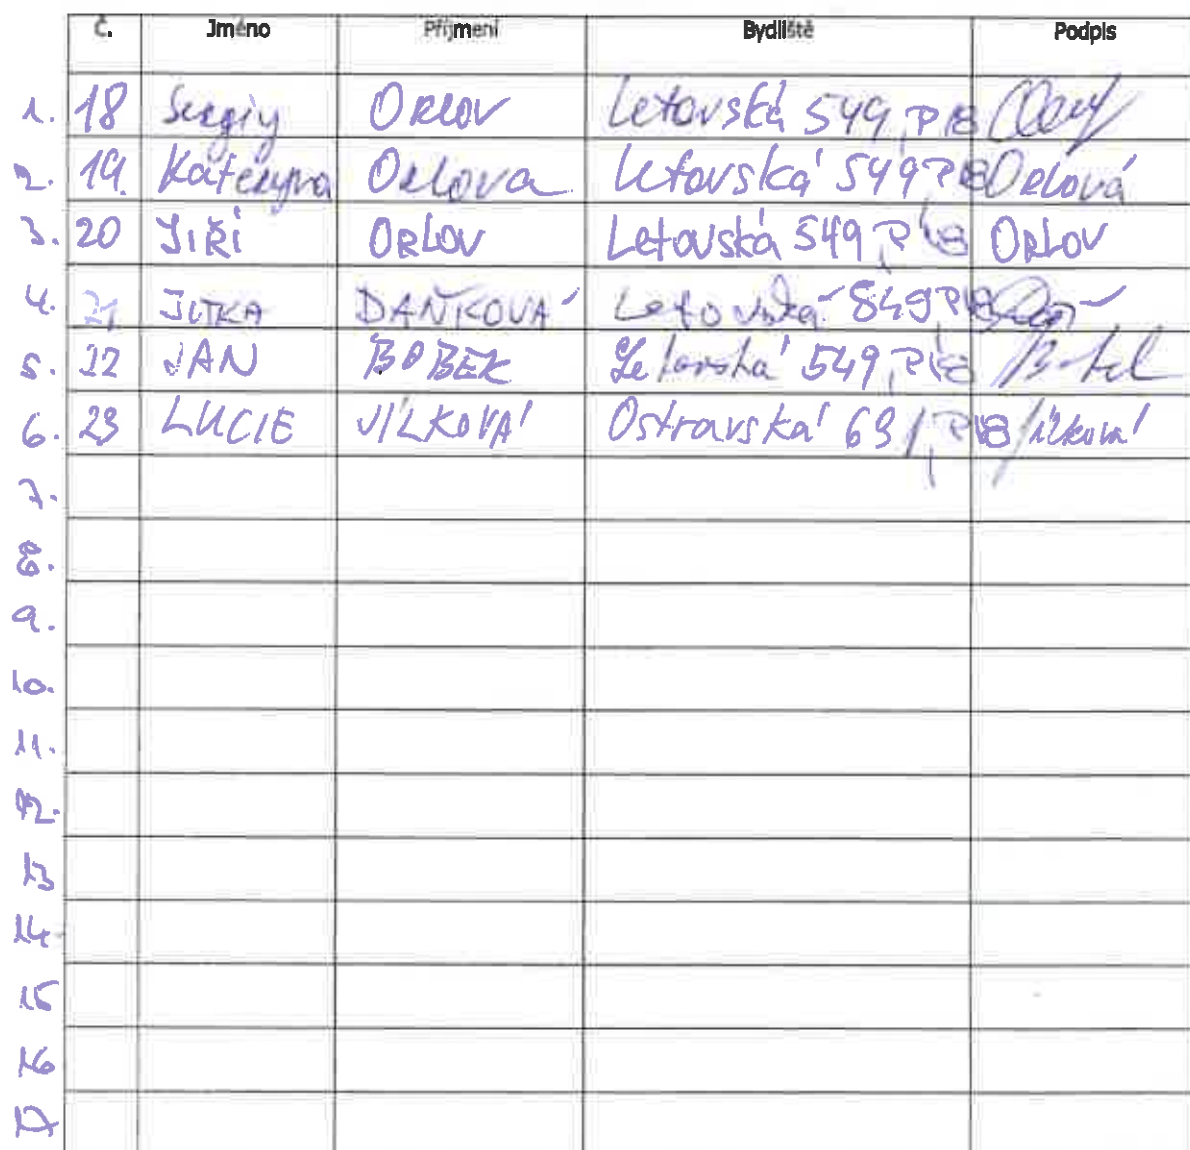 Č. Jméno Příjmení Bydliště Podpis
1. 18 Sergiy Orlov Letovská 549, P18
2. 19. Kateryna Orlova Letovská 549 P18 Orlová
3. 20 JIŘÍ ORLOV Letovská 549, P18 ORLOV
4. 21 JITKA DAŇKOVÁ Letovská 849 P18
5. 22 JAN BOBEK Letovská 549, P18
6. 23 LUCIE VÍLKOVÁ Ostravská 69, P18 Vílková
7.
8.
9.
10.
11.
12.
13
14
15
16
17